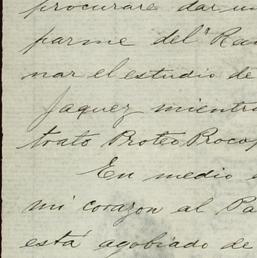 procurare dar un
parme del Ran
nar el estudio de
Jaquez mientra
trato Broteo Procop
En medio
mi corazon al Pa
está agobiado de